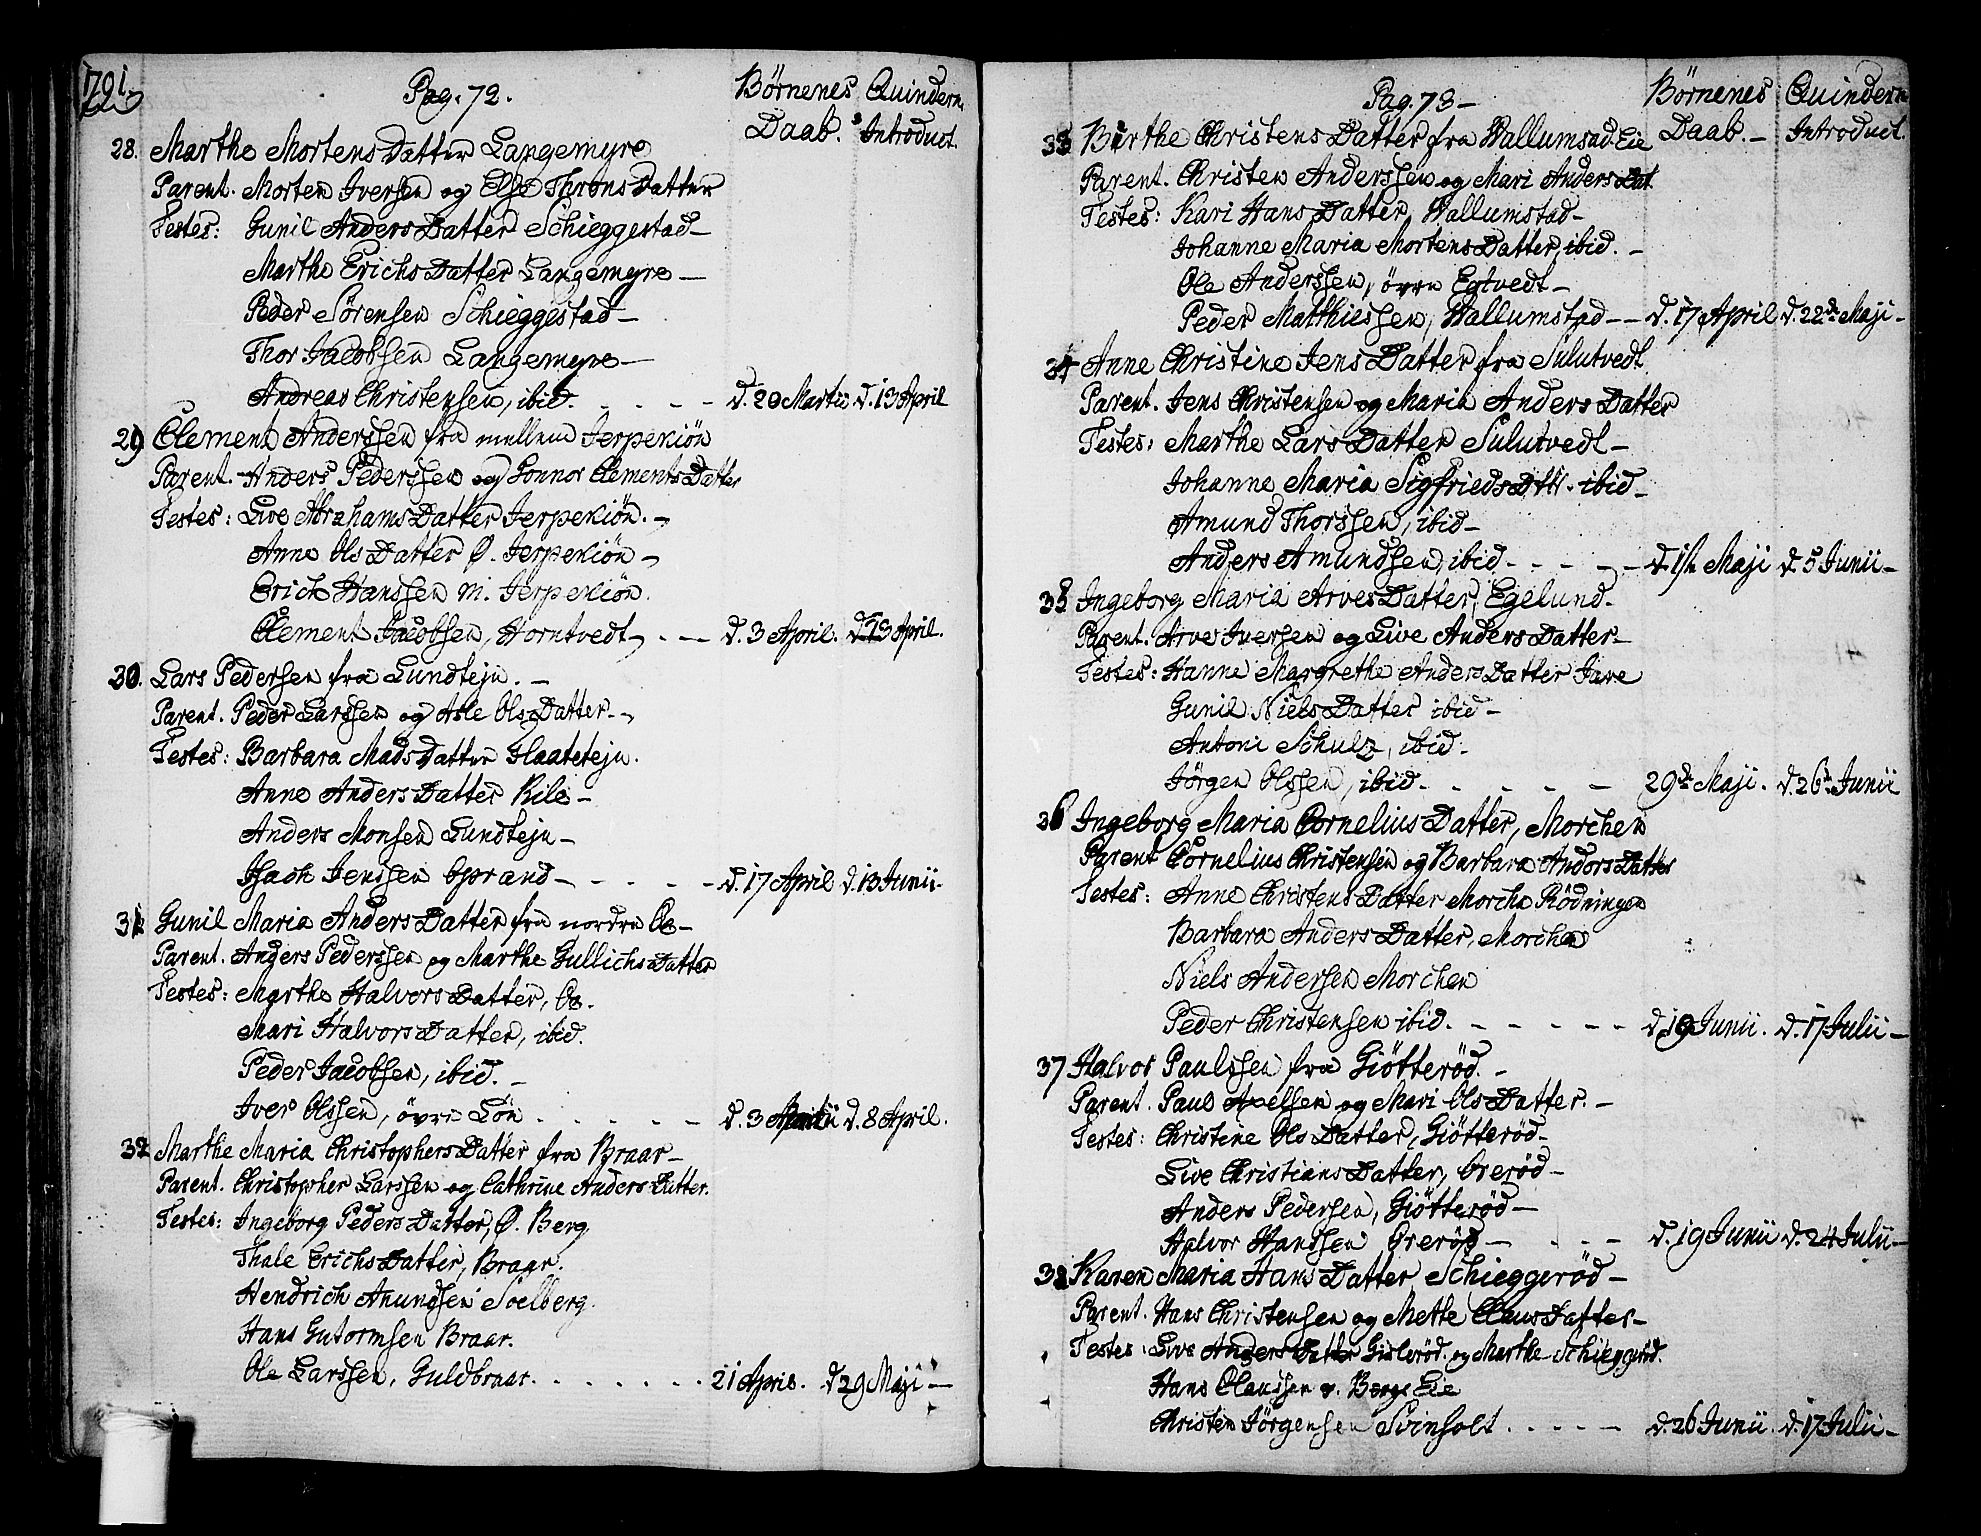 1791.
Pag. 72.
Börnenes Daab. Quindern. Introduct.
28. Marthe Mortens Datter Langemyre
Parent. Morten Iversen og Else Throns Datter
Testes: Gunil Anders Datter Schieggestad
Marthe Erichs Datter Langemyre
Peder Sörensen Schieggestad
Thor Jacobsen Langemyre
Andreas Christensen, ibid. d. 20 Martii d. 13 April
29 Clement Anderssen fra mellem Jerpekiön
Parent. Anders Pederssen og Gonnor Clements Datter
Testes: Live Abrahams Datter Jerpekiön.
Anne Ols Datter Ø. Jerpekiön
Erich Hanssen m. Jerpekiön.
Clement Jacobsen, Horntvedt d. 3 April. d. 13 April.
30. Lars Pedersen fra Lundteju.
Parent. Peder Larssen og Asle Ols Datter
Testes: Barbara Mads Datter Flaateteju.
Anne Anders Datter Rile
Anders Monsen Lundteju
Isach Jenssen d. 17 April d. 13 Junii
31 Gunil Maria Anders Datter fra nordre Oe
Parent. Anders Pederssen og Marthe Gullichs Datter
Testes: Marthe Halvors Datter, Oe.
Mari Halvors Datter, ibid.
Peder Jacobsen, ibid.
Iver Olssen, övre Lön d. 3 d. 8 April.
32 Marthe Maria Christophers Datter fra Braar
Parent. Christopher Larssen og Cathrine Anders Datter.
Testes: Ingeborg Peders Datter, Ø. Berg
Thale Erichs Datter, Braar.
Hendrich Anundsen Soelberg.
Hans Gutormsen Braar.
Ole Larssen, Guldbraar. 21 April. d 29 Maji
Pag. 73
Börnenes Daab. Quindern Introduct.
33 Birthe Christens Datter fra Wallumsad Eie
Parent. Christen Anderssen og Mari Anders Dat
Testes: Kari Hans Datter, Wallumstad
Johanne Maria Mortens Datter, ibid.
Ole Anderssen, övre Egtvedt
Peder Matthiessen, Wallumstad d. 17 April d. 22de Maji
34 Anne Christine Jens Datter fra Sulutvedt
Parent. Jens Christensen og Maria Anders Datter
Testes: Marthe Lars Datter Sulutvedt
Johanne Maria Sigfrieds Dttr. ibid
Amund Thorssen, ibid
Anders Amundsen, ibid. d. 1ste Maji d. 5 Junii
35 Ingeborg Maria Arves Datter, Egelund.
Parent. Arve Iversen og Live Anders Datter
Testes: Hanne Margrethe Anders Datter Jare
Gunil Niels Datter ibid
Antoni Schulz, ibid.
Jörgen Olssen, ibid. 29de Maji. d. 26de Junii
36 Ingeborg Maria Cornelius Datter, Morchen
Parent Cornelius Christensen og Barbara Anders Datter
Testes: Anne Christens Datter Morche Rödningen
Barbara Anders Datter, Morchen
Niels Andersen Morchen
Peder Christensen ibid. d 19 Junii. d. 17 Julii
37 Halvor Paulssen fra Giötteröd.
Parent. Paul Axelsen og Mari Ols Datter.
Testes: Christine Ols Datter, Giötteröd
Live Christians Datter, Greröd
Anders Pedersen, Giötteröd
Halvor Hanssen Greröd d. 19 Junii d. 24 Julii
38 Karen Maria Hans Datter Schieggeröd
Parent. Hans Christensen og Mette Claus Datter
Testes: Live Anders Datter Gisleröd og Marthe Schieggeröd.
Hans Claussen v. Bergs Eie
Christen Jörgensen Svinholt d. 26 Junii. d. 17 Julii